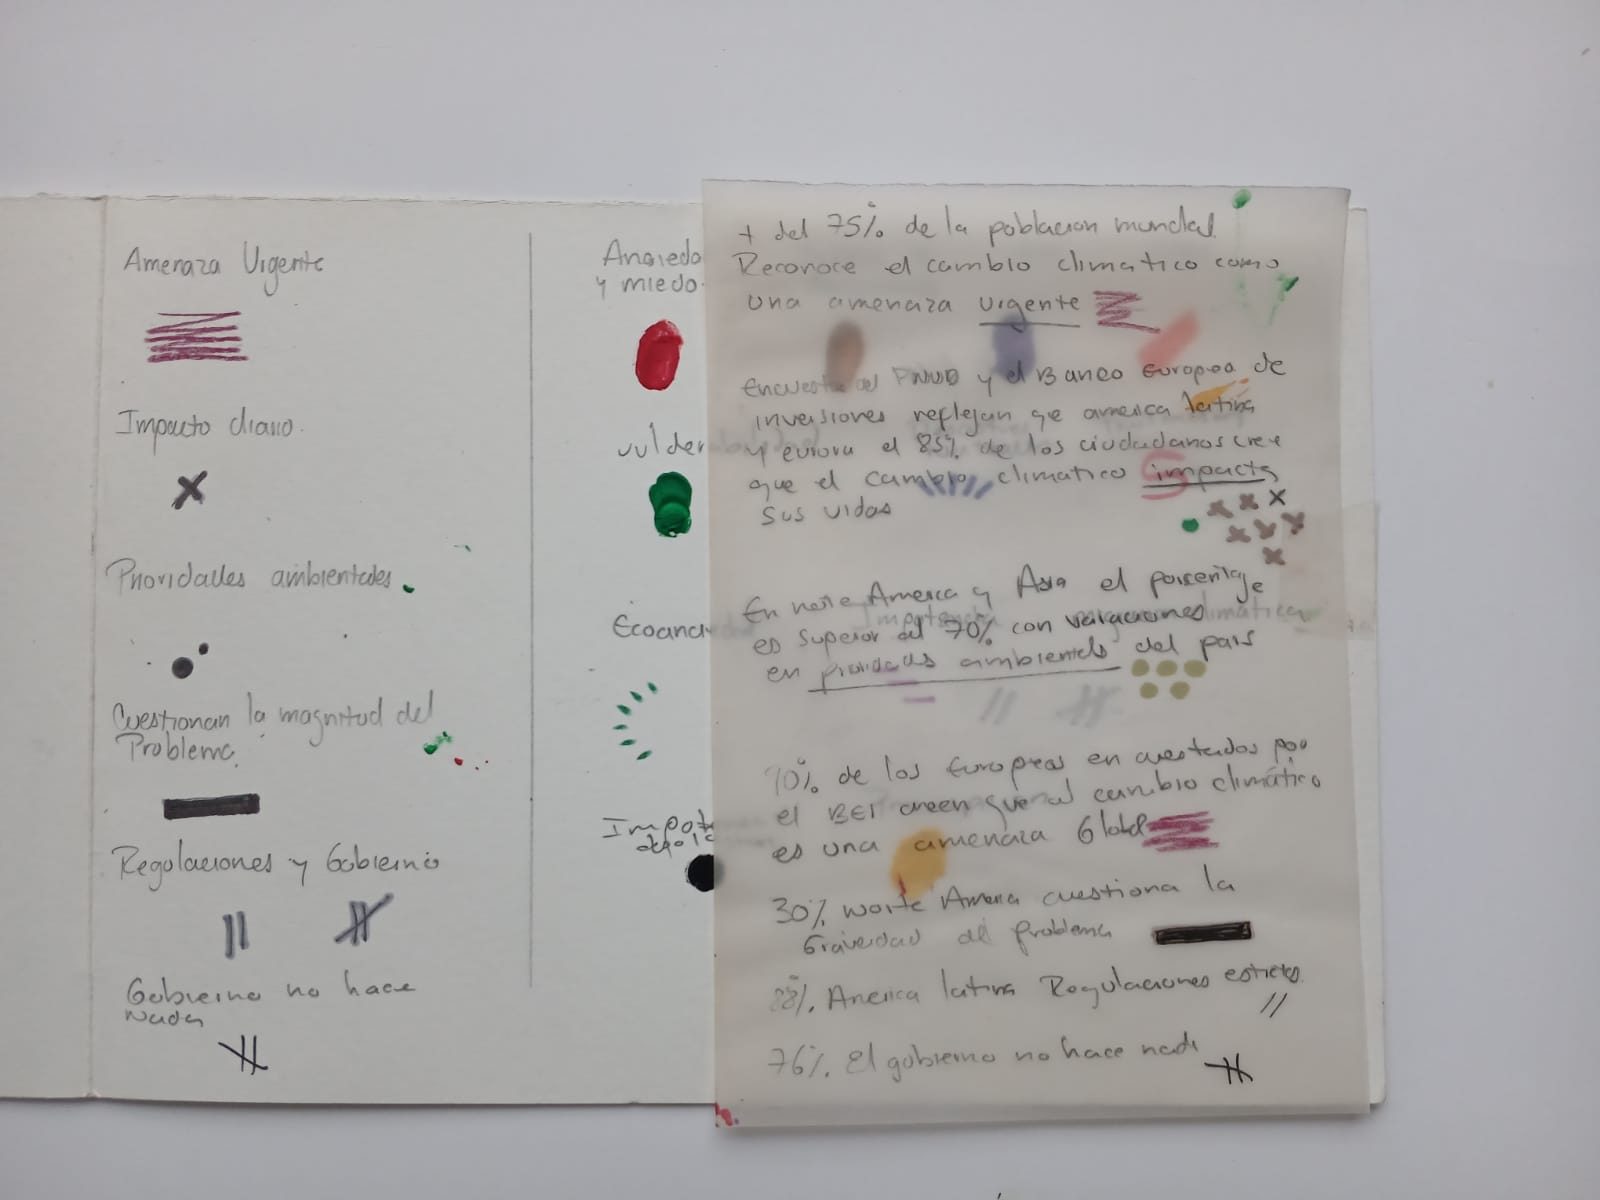 Amenaza Urgente
Impacto diario.
Prioridades ambientales
Cuestionan la magnitud del
Problema.
Regulaciones y Gobierno
Gobierno no hace
nada
Ansieda
y miedo.
vulner
Ecoans
Impot
+ del 75% de la poblacion mundial.
Reconoce el cambio climatico como
una amenaza urgente
Encuesta del PNUD y el Banco Europeo de
inversiones reflejan qe america latina
y europa el 85% de los ciudadanos cree
que el cambio climatico impacta
sus vidas
En norte America y Asia el porcentaje
es superior al 70% con variaciones
en prioridades ambientales del pais
90% de los Europeos encuestados por
el BEI creen que el cambio climático
es una amenaza Global
30% Norte America cuestiona la
Gravedad del problema
88%. America latina Regulaciones estrictas.
76%. El gobierno no hace nada